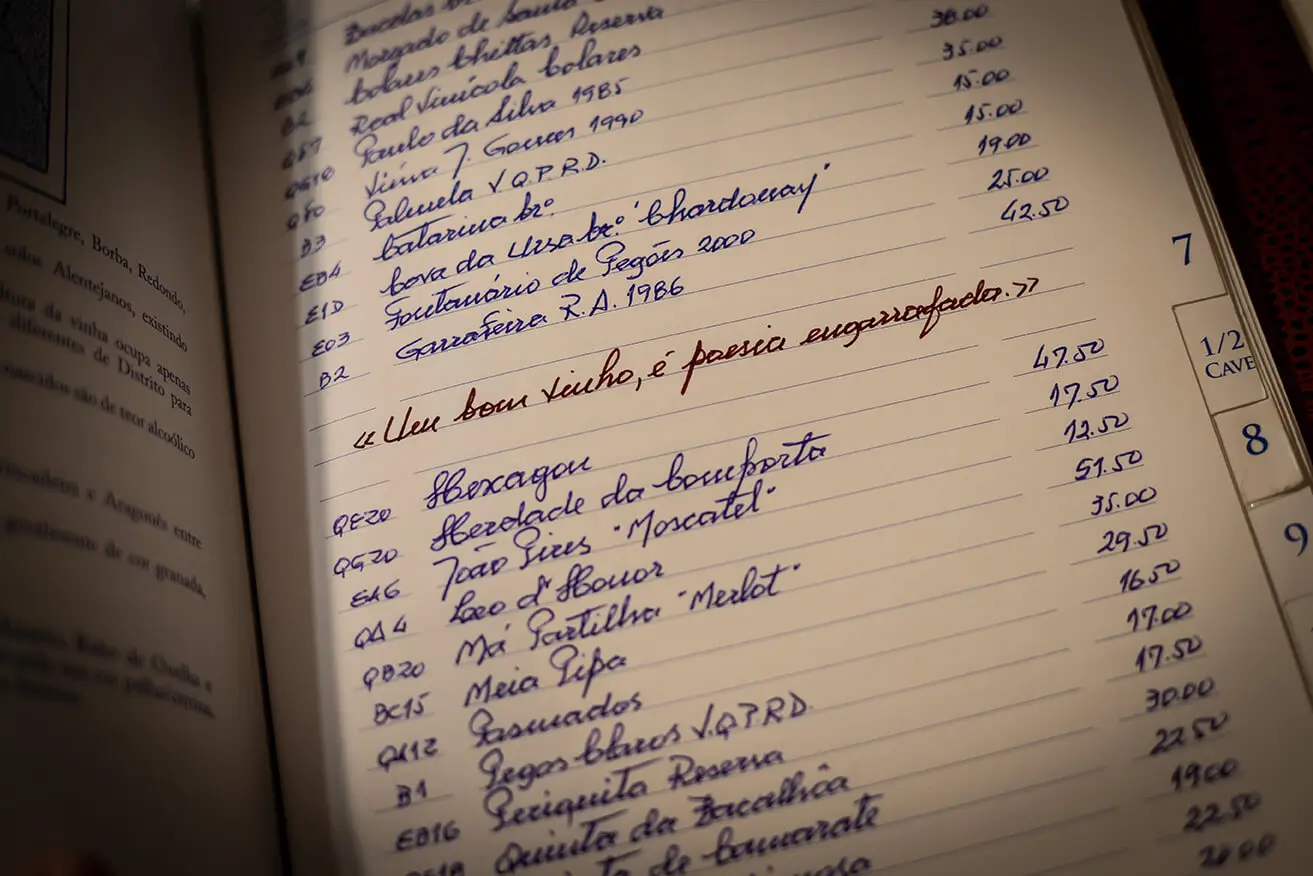 Morgado de Santa
Colares Chittas Reserva
B2 Real Vinícola Colares
Paulo da Silva 1985 38.00
Viúva J. Gomes 1990 35.00
Palmela V.Q.P.R.D. 15.00
B3 Catarina br.º 15.00
EB4 Cova da Ursa br.º "Chardonnay" 19.00
E1D Fontanário de Pegões 2000 25.00
E03 Garrafeira R.A. 1986 42.50
B2
«Um bom vinho, é poesia engarrafada.»
QE20 Hexagon 47.50
QG20 Herdade da Comporta 17.50
EA6 João Pires "Moscatel" 12.50
QA4 Loco d'Honor 51.50
QB20 Má Partilha "Merlot" 35.00
BC15 Meia Pipa 29.50
QA12 Pasmados 16.50
B1 Pegos Claros V.Q.P.R.D. 17.00
EB16 Periquita Reserva 17.50
Quinta da Bacalhôa 30.00
de Camarate 22.50
19.00
22.50
20.00
7
1/2
CAVE
8
9
Portalegre, Borba, Redondo,
Alentejanos, existindo
da vinha ocupa apenas
diferentes de Distrito para
são de teor alcoólico
e Aragonês entre
de cor granada,